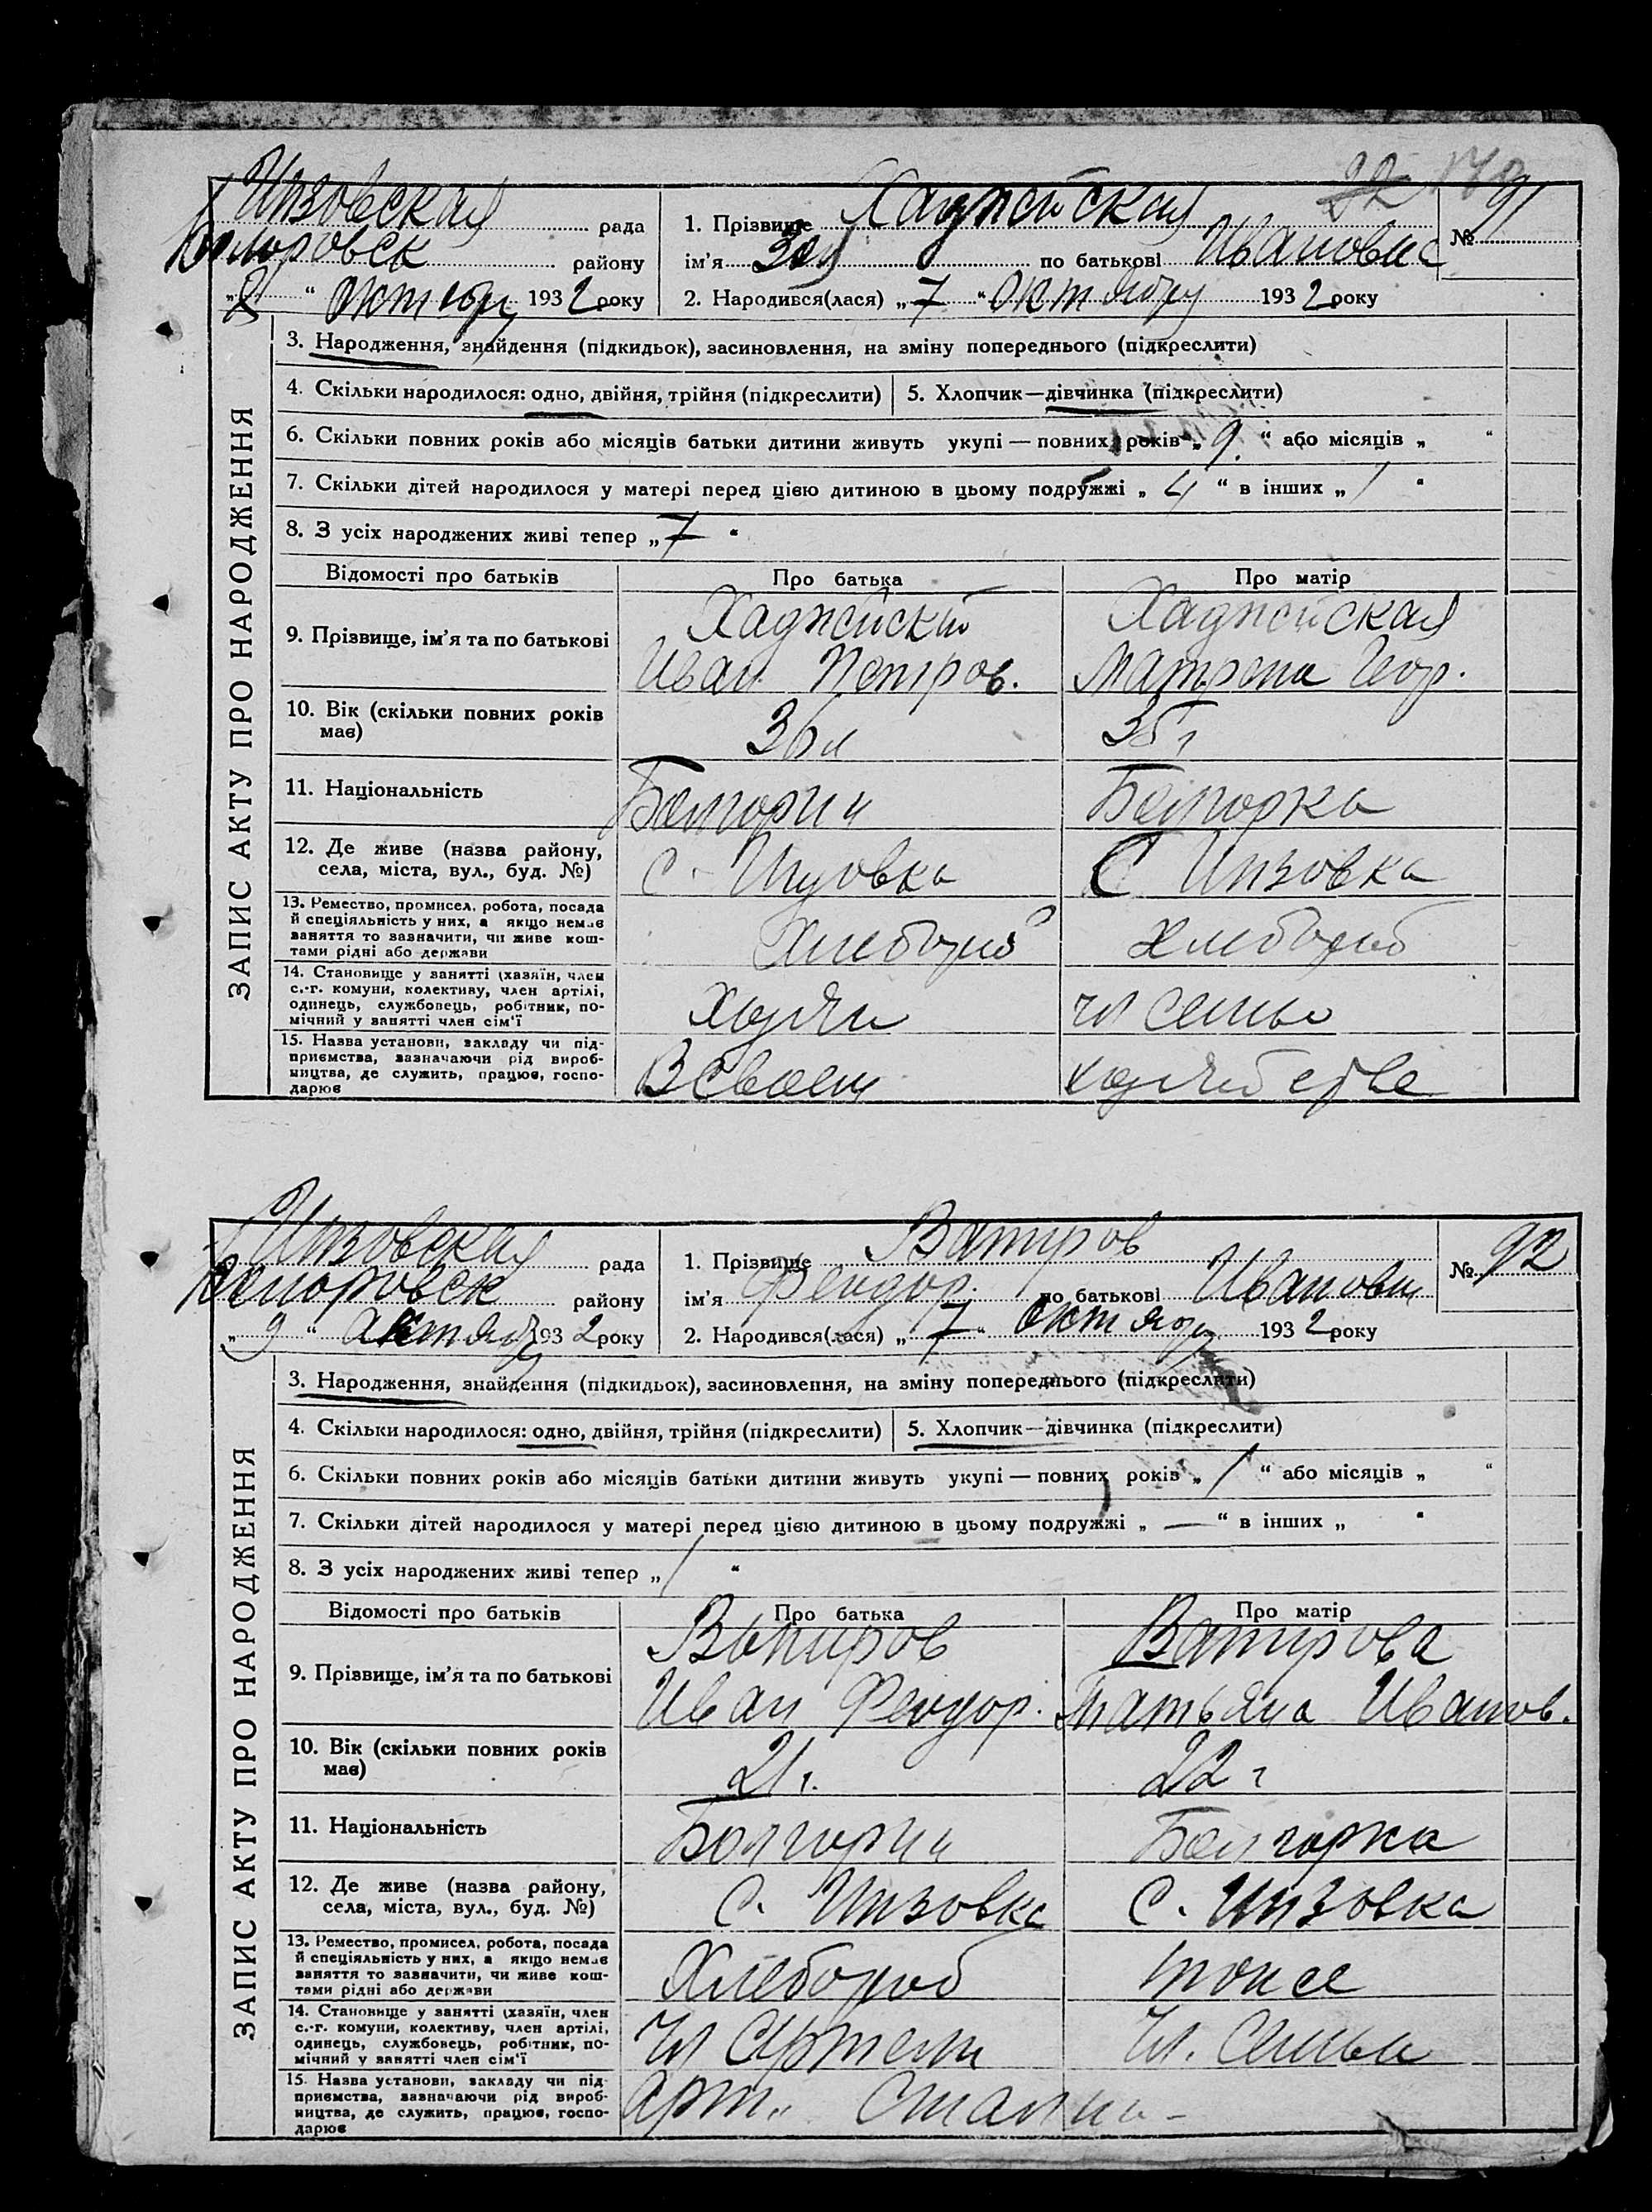 Инзовская рада
район
„8“ октября 1932 року
1. Прізвище Хаджейская
ім'я Зоя по батькові Ивановне
2. Народився(лася) „7“ октября 1932 року
№ 91
ЗАПИС АКТУ ПРО НАРОДЖЕННЯ
3. Народження, знайдення (підкидьок), засиновлення, на зміну попереднього (підкреслити)
4. Скільки народилося: одно, двійня, трійня (підкреслити)
5. Хлопчик—дівчинка (підкреслити)
6. Скільки повних років або місяців батьки дитини живуть укупі — повних років „9.“ або місяців „ “
7. Скільки дітей народилося у матері перед цією дитиною в цьому подружжі „4“ в інших „/ “
8. З усіх народжених живі тепер „7“
Відомості про батьків Про батька Про матір
9. Прізвище, ім'я та по батькові
Хаджейский
Иван Петров.
Хаджейская
Матрена Геор.
10. Вік (скільки повних років
має)
36 л
35 г
11. Національність
Болгорин
Болгорка
12. Де живе (назва району,
села, міста, вул., буд. №)
с. Инзовка
С Инзовка
13. Ремество, промисел, робота, посада
й спеціяльність у них, а якщо немає
заняття то зазначити, чи живе кош-
тами рідні або держави
Хлебороб
Хлебороб
14. Становище у занятті (хазяїн, член
с.-г. комуни, колективу, член артілі,
одинець, службовець, робітник, по-
мічний у занятті член сім'ї
Хозяин
чл семьи
15. Назва установи, закладу чи під-
приємства, зазначаючи рід вироб-
ництва, де служить, працює, госпо-
дарює
В своем
Инзовская рада
району
„9“ октября 1932 року
1. Прізвище Вапиров
ім'я Феодор. по батькові Иванови
2. Народився(лася) „7“ октября 1932 року
№ 92
ЗАПИС АКТУ ПРО НАРОДЖЕННЯ
3. Народження, знайдення (підкидьок), засиновлення, на зміну попереднього (підкреслити)
4. Скільки народилося: одно, двійня, трійня (підкреслити)
5. Хлопчик—дівчинка (підкреслити)
6. Скільки повних років або місяців батьки дитини живуть укупі — повних років „1“ або місяців „ “
7. Скільки дітей народилося у матері перед цією дитиною в цьому подружжі „—“ в інших „ “
8. З усіх народжених живі тепер „1“
Відомості про батьків Про батька Про матір
9. Прізвище, ім'я та по батькові
Вапиров
Иван Феодор.
Вапирова
Татьяна Иванов.
10. Вік (скільки повних років
має)
21 г.
22 г
11. Національність
Болгорин
Болгорка
12. Де живе (назва району,
села, міста, вул., буд. №)
с. Инзовка
с. Инзовка
13. Ремество, промисел, робота, посада
й спеціяльність у них, а якщо немає
заняття то зазначити, чи живе кош-
тами рідні або держави
Хлебороб
тоже
14. Становище у занятті (хазяїн, член
с.-г. комуни, колективу, член артілі,
одинець, службовець, робітник, по-
мічний у занятті член сім'ї
Чл Артели
Чл. Семьи
15. Назва установи, закладу чи під-
приємства, зазначаючи рід вироб-
ництва, де служить, працює, госпо-
дарює
Арт. Сталина